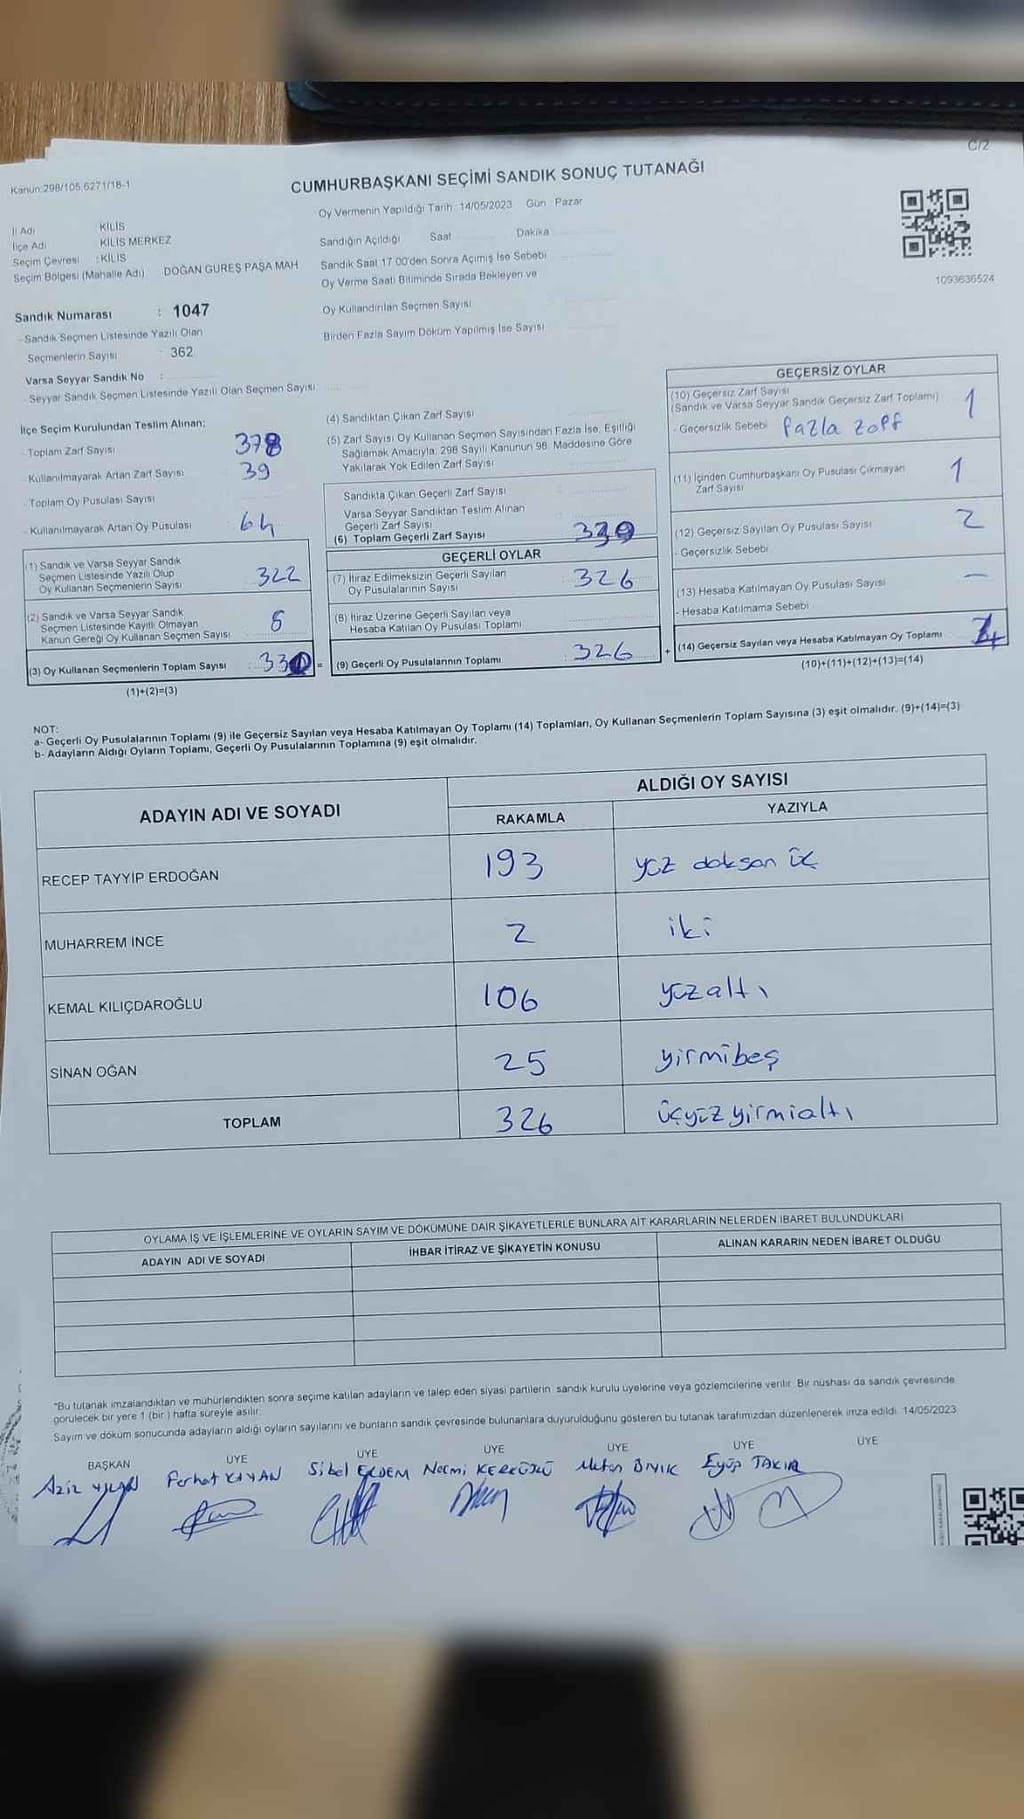 C/2
Kanun:298/105,6271/18-1
CUMHURBAŞKANI SEÇİMİ SANDIK SONUÇ TUTANAĞI
Oy Vermenin Yapıldığı Tarih :14/05/2023 Gün : Pazar
İl Adı KİLİS
İlçe Adı KİLİS MERKEZ
Seçim Çevresi : KİLİS
Seçim Bölgesi (Mahalle Adı) DOĞAN GÜREŞ PAŞA MAH
Sandığın Açıldığı Saat Dakika
Sandık Saat 17.00'den Sonra Açımış İse Sebebi
Oy Verme Saati Bitiminde Sırada Bekleyen ve
Oy Kullandırılan Seçmen Sayısı
Birden Fazla Sayım Döküm Yapılmış İse Sayısı
1093636524
Sandık Numarası : 1047
- Sandık Seçmen Listesinde Yazılı Olan
Seçmenlerin Sayısı : 362
Varsa Seyyar Sandık No :
- Seyyar Sandık Seçmen Listesinde Yazılı Olan Seçmen Sayısı
İlçe Seçim Kurulundan Teslim Alınan;
- Toplam Zarf Sayısı 378
- Kullanılmayarak Artan Zarf Sayısı 39
- Toplam Oy Pusulası Sayısı
- Kullanılmayarak Artan Oy Pusulası 64
(1) Sandık ve Varsa Seyyar Sandık
Seçmen Listesinde Yazılı Olup
Oy Kullanan Seçmenlerin Sayısı 322
(2) Sandık ve Varsa Seyyar Sandık
Seçmen Listesinde Kayıtlı Olmayan
Kanun Gereği Oy Kullanan Seçmen Sayısı
(3) Oy Kullanan Seçmenlerin Toplam Sayısı : 330 =
(1)+(2)=(3)
(4) Sandıktan Çıkan Zarf Sayısı
(5) Zarf Sayısı Oy Kullanan Seçmen Sayısından Fazla İse, Eşitliği
Sağlamak Amacıyla, 298 Sayılı Kanunun 98. Maddesine Göre
Yakılarak Yok Edilen Zarf Sayısı
Sandıkta Çıkan Geçerli Zarf Sayısı
Varsa Seyyar Sandıktan Teslim Alınan
Geçerli Zarf Sayısı
(6) Toplam Geçerli Zarf Sayısı
GEÇERLİ OYLAR
(7) İtiraz Edilmeksizin Geçerli Sayılan
Oy Pusulalarının Sayısı 326
(8) İtiraz Üzerine Geçerli Sayılan veya
Hesaba Katılan Oy Pusulası Toplamı
(9) Geçerli Oy Pusulalarının Toplamı : 326 +
GEÇERSİZ OYLAR
(10) Geçersiz Zarf Sayısı
(Sandık ve Varsa Seyyar Sandık Geçersiz Zarf Toplamı) 1
- Geçersizlik Sebebi fazla zarf
(11) İçinden Cumhurbaşkanı Oy Pusulası Çıkmayan
Zarf Sayısı 1
(12) Geçersiz Sayılan Oy Pusulası Sayısı 2
- Geçersizlik Sebebi
(13) Hesaba Katılmayan Oy Pusulası Sayısı —
- Hesaba Katılmama Sebebi
(14) Geçersiz Sayılan veya Hesaba Katılmayan Oy Toplamı 4
(10)+(11)+(12)+(13)=(14)
NOT:
a- Geçerli Oy Pusulalarının Toplamı (9) ile Geçersiz Sayılan veya Hesaba Katılmayan Oy Toplamı (14) Toplamları, Oy Kullanan Seçmenlerin Toplam Sayısına (3) eşit olmalıdır. (9)+(14)=(3)
b- Adayların Aldığı Oyların Toplamı, Geçerli Oy Pusulalarının Toplamına (9) eşit olmalıdır.
ADAYIN ADI VE SOYADI ALDIĞI OY SAYISI
RAKAMLA YAZIYLA
RECEP TAYYİP ERDOĞAN 193 yüz doksan üç
MUHARREM İNCE 2 iki
KEMAL KILIÇDAROĞLU 106 yüzaltı
SİNAN OĞAN 25 yirmibeş
TOPLAM 326 üçyüzyirmialtı
OYLAMA İŞ VE İŞLEMLERİNE VE OYLARIN SAYIM VE DÖKÜMÜNE DAİR ŞİKAYETLERLE BUNLARA AİT KARARLARIN NELERDEN İBARET BULUNDUKLARI
ADAYIN ADI VE SOYADI İHBAR İTİRAZ VE ŞİKAYETİN KONUSU ALINAN KARARIN NEDEN İBARET OLDUĞU
"Bu tutanak imzalandıktan ve mühürlendikten sonra seçime katılan adayların ve talep eden siyasi partilerin sandık kurulu üyelerine veya gözlemcilerine verilir. Bir nüshası da sandık çevresinde
görülecek bir yere 1 (bir) hafta süreyle asılır.
Sayım ve döküm sonucunda adayların aldığı oyların sayılarını ve bunların sandık çevresinde bulunanlara duyurulduğunu gösteren bu tutanak tarafımızdan düzenlenerek imza edildi. 14/05/2023
BAŞKAN ÜYE ÜYE ÜYE ÜYE ÜYE ÜYE
Aziz Ferhat KAYAN Sibel Necmi Metin BIYIK Eyüp TAKIR